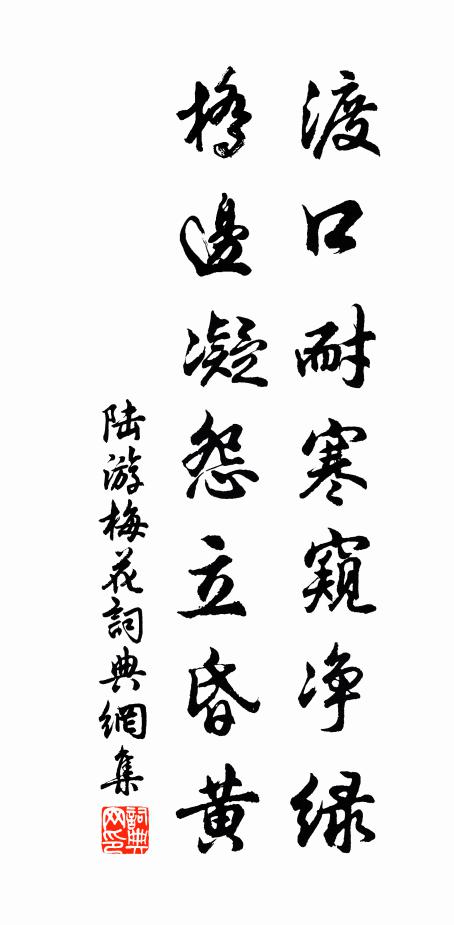 渡口耐寒窺净緑
橋邊凝怨立昏黄
陆游梅花詞典網集
詞典网印